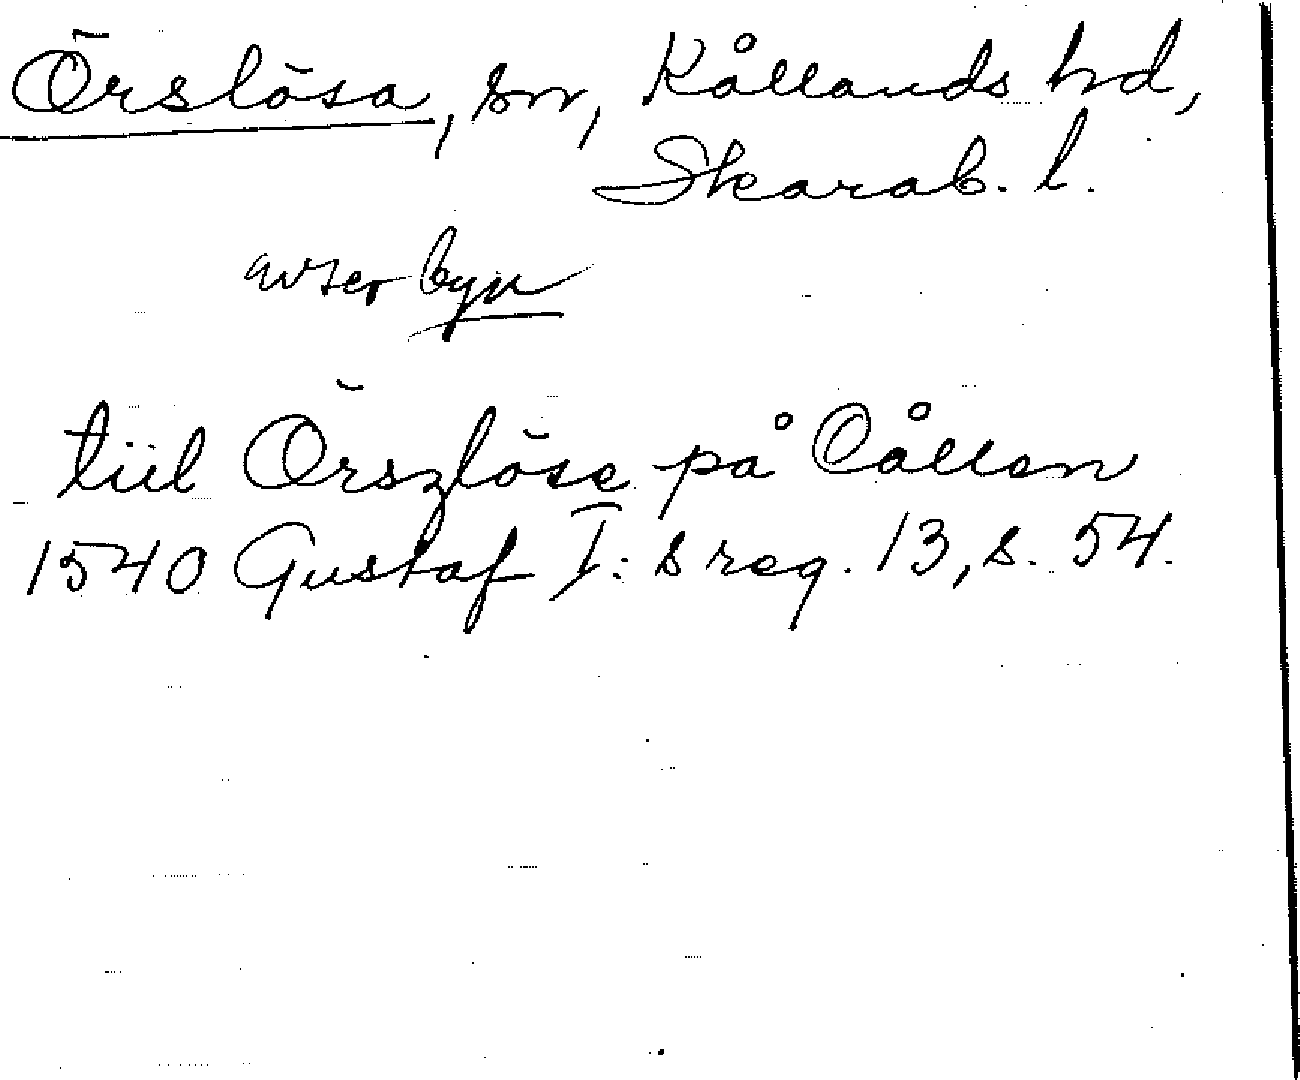 Örslösa, sn, Kållands hd,
Skarab. l.
avser byn
tiil Örszlöse på Cållen
1540 Gustaf I:s reg. 13, s. 54.